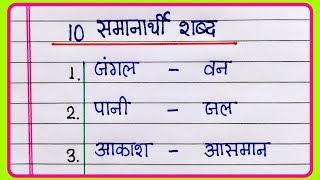 10 समानार्थी शब्द
1. जंगल - वन
2. पानी - जल
3. आकाश - आसमान